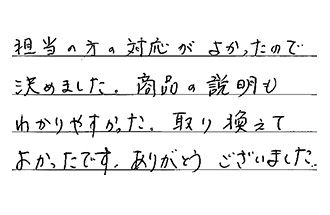 担当の方の対応がよかったので
決めました。商品の説明も
わかりやすかった。取り換えて
よかったです。ありがとうございました